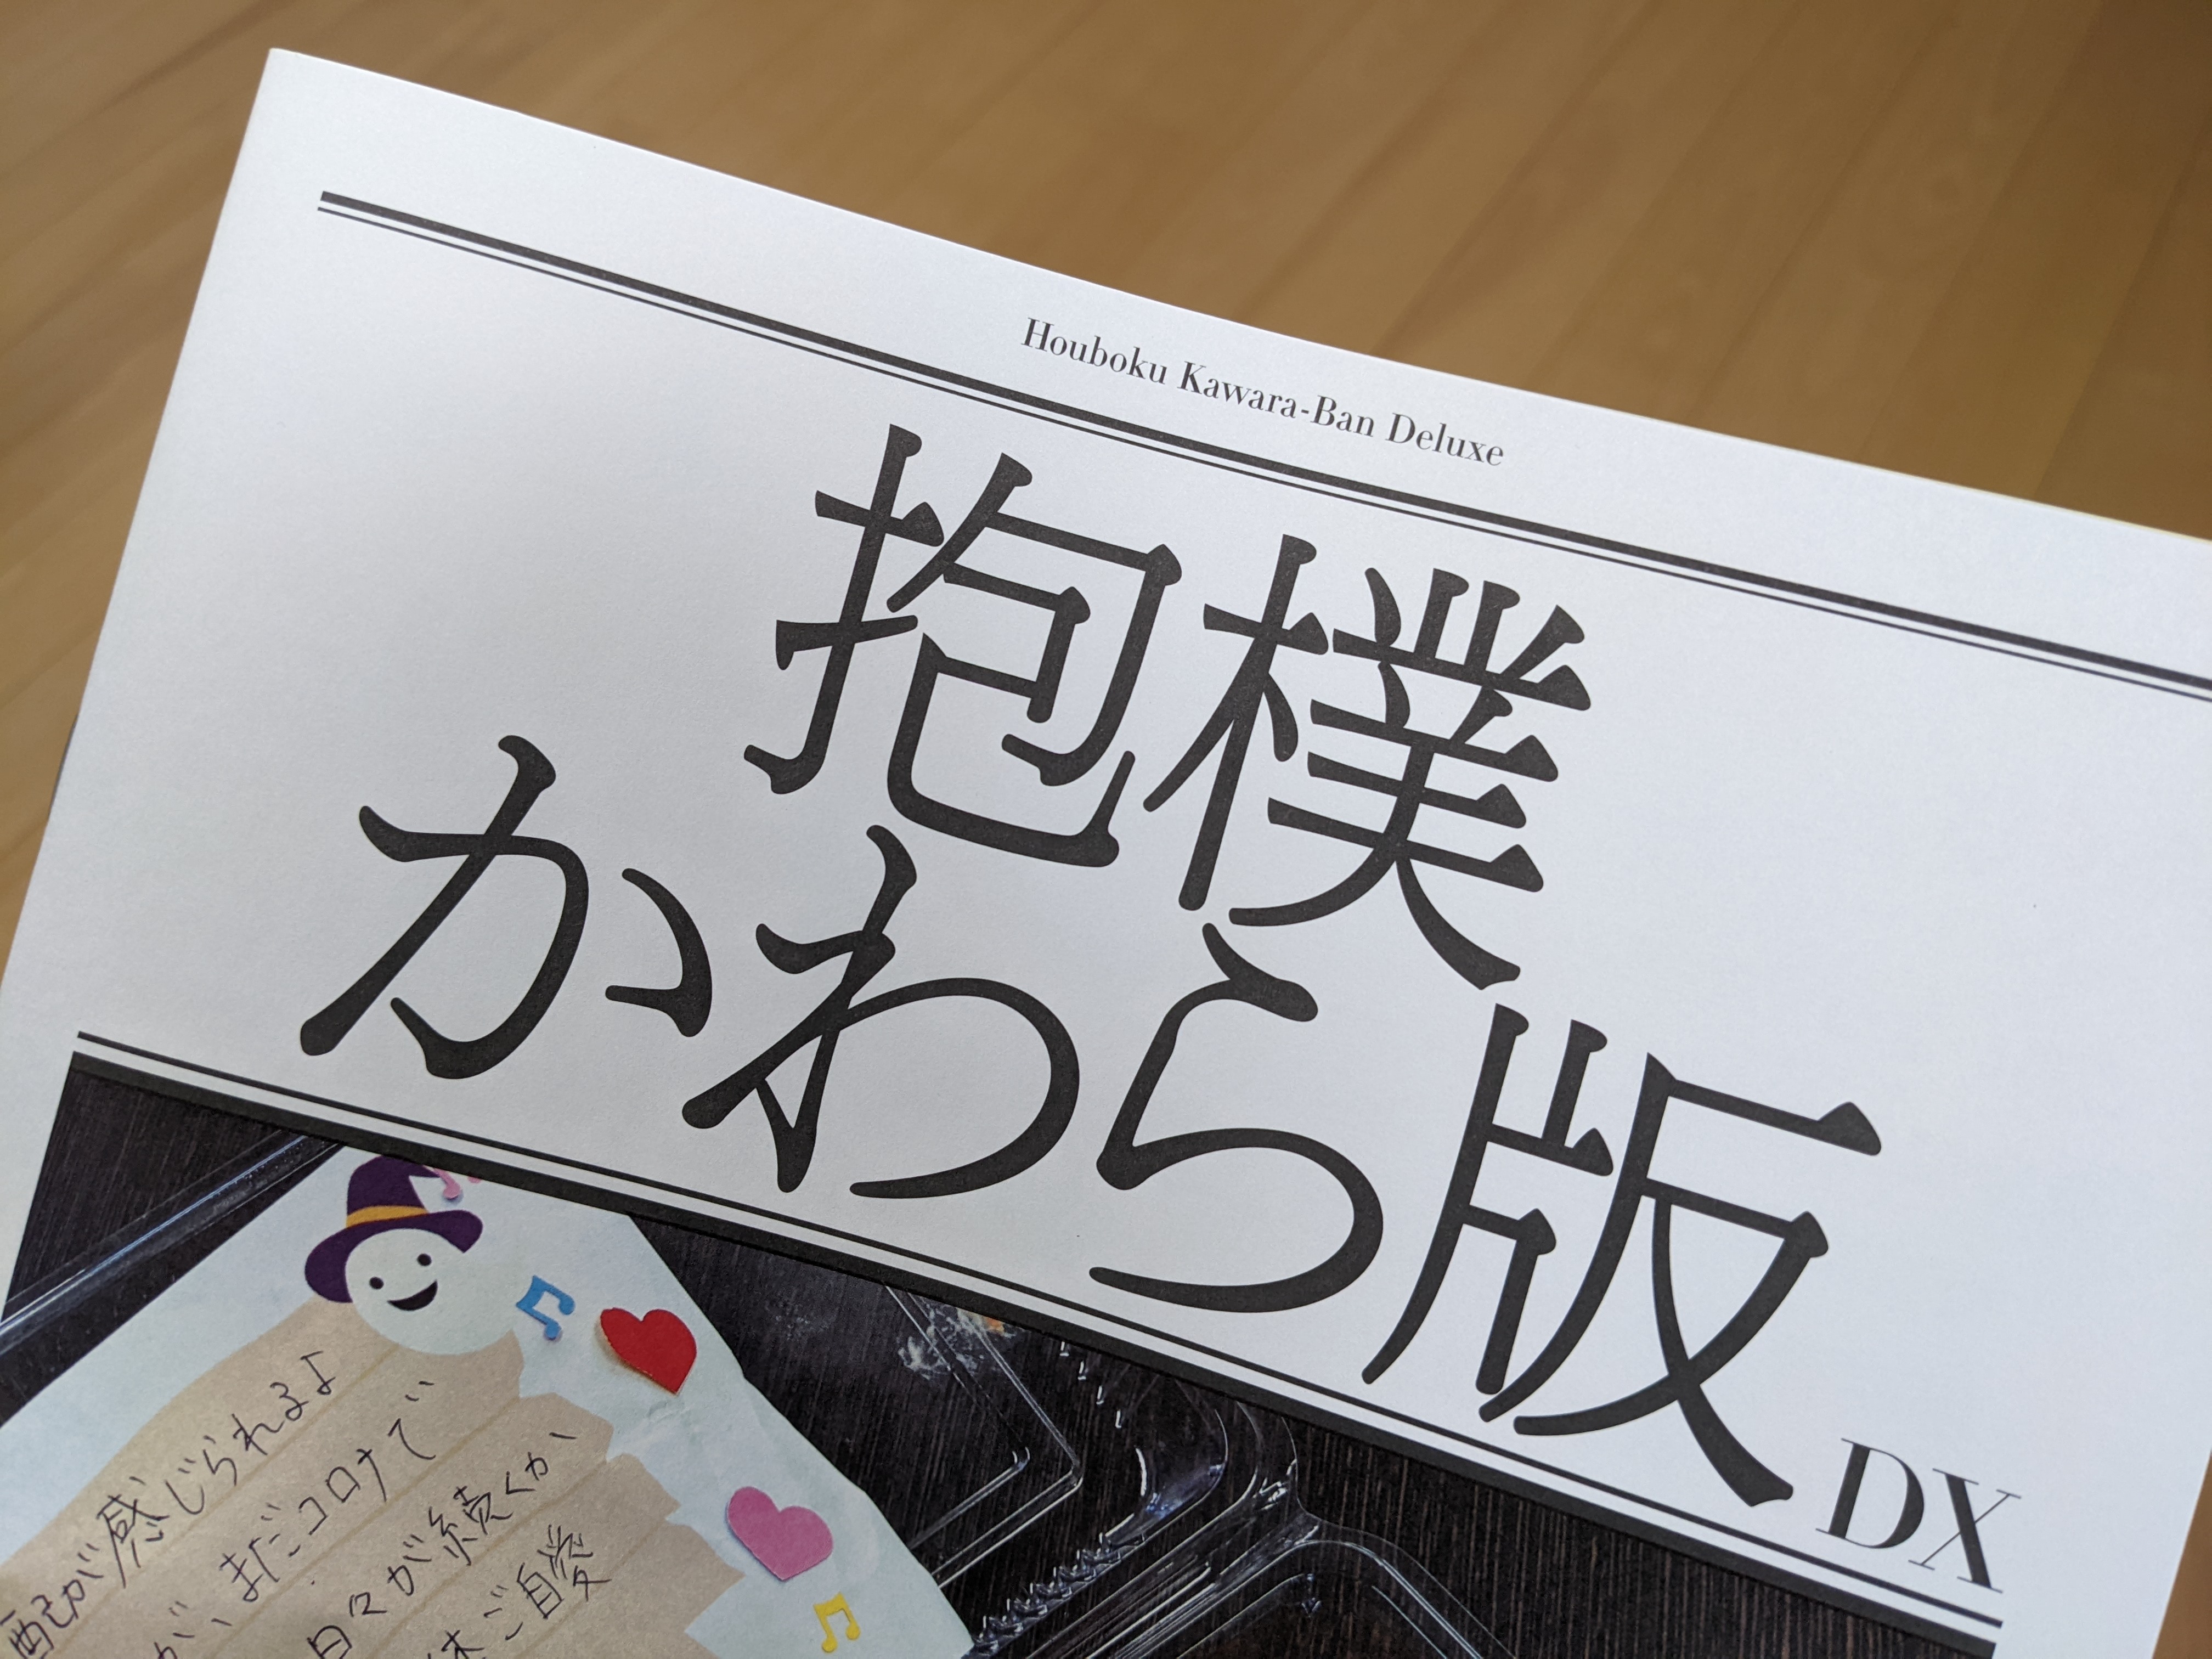 Houboku Kawara-Ban Deluxe
抱樸
かわら版 DX
配が感じられるよ
が、まだコロナで
日々が続くか
ご自愛